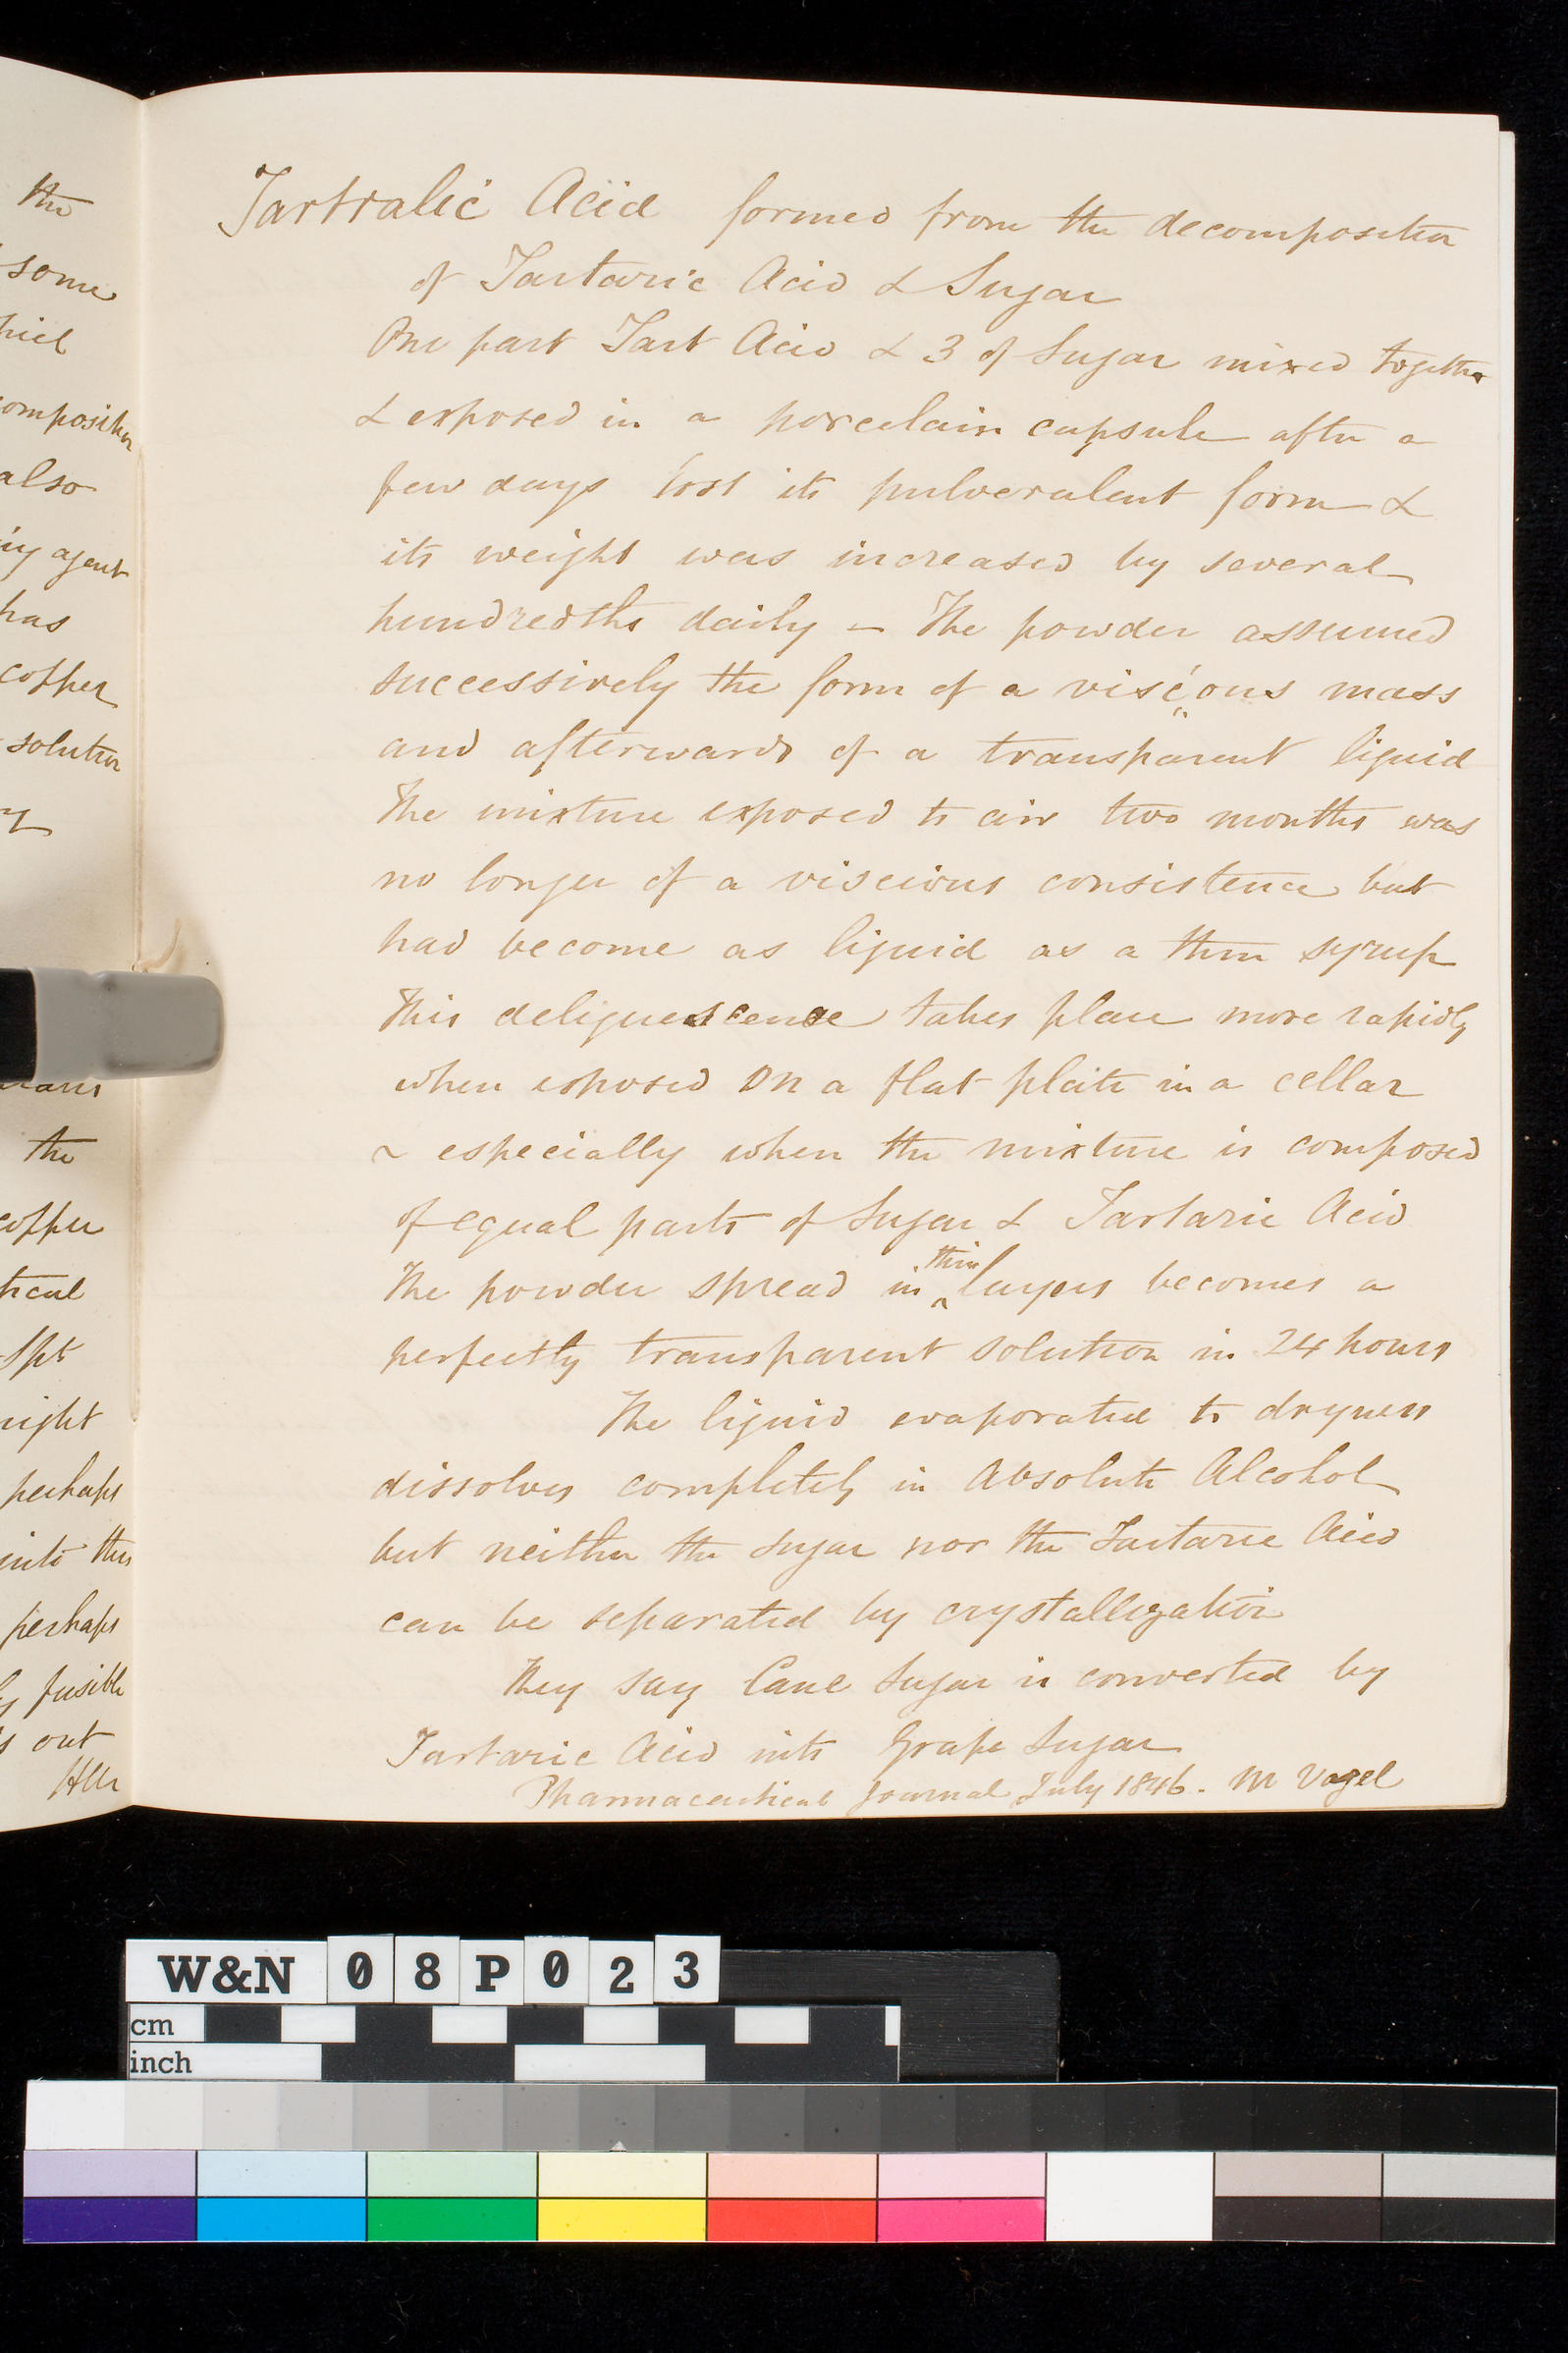 the
some
composition
also
agent
has
copper
solution
the
copper
spt
right
perhaps
into this
perhaps
fusible
out
Tartralic Acid formed from the decomposition
of Tartaric Acid & Sugar
One part Tart Acid & 3 of Sugar mixed together
& exposed in a porcelain capsule after a
few days lost its pulveralent form &
its weight was increased by several
hundredths daily – The powder assumed
successively the form of a viscious mass
and afterwards of a transparent liquid
The mixture exposed to air two months was
no longer of a viscious consistence but
had become as liquid as a thin syrup
This deliquescence takes place more rapidly
when exposed on a flat plate in a cellar
~ especially when the mixture is composed
of equal parts of Sugar & Tartaric Acid
The powder spread in thin layers becomes a
perfectly transparent solution in 24 hours
The liquid evaporated to dryness
dissolves completely in Absolute Alcohol
but neither the sugar nor the Tartaric Acid
can be separated by crystallization
They say Cane Sugar is converted by
Tartaric Acid into Grape Sugar
Pharmaceutical Journal July 1846. M Vogel
W&N 08P023
cm
inch